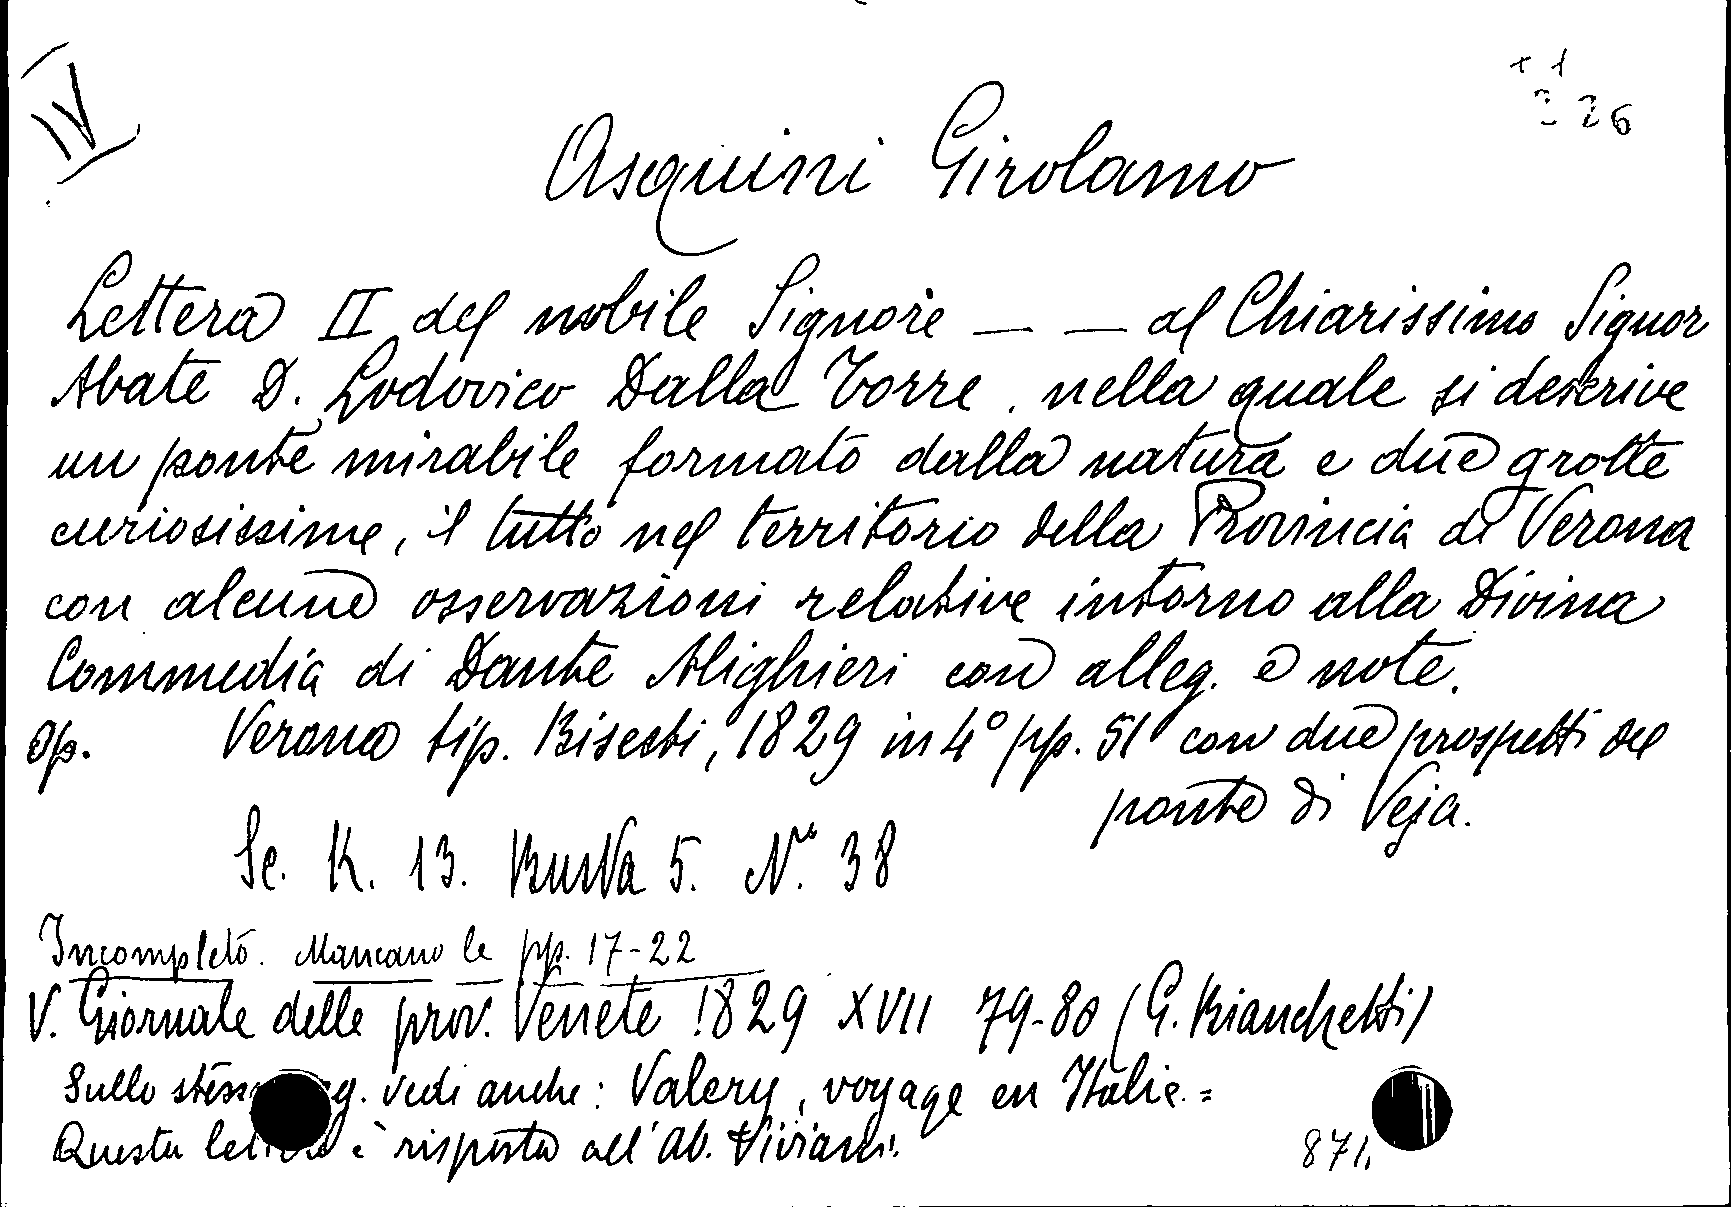 IV
+ 1
226
Asquini Girolamo
Lettera II del nobile Signore — — al Chiarissimo Signor
Abate D. Lodovico Dalla Torre, nella quale si descrive
un ponte mirabile formato dalla natura e due grotte
curiosissime, il tutto nel territorio della Provincia di Verona
con alcune osservazioni relative intorno alla Divina
Commedia di Dante Alighieri con alleg. e note.
Op. Verona tip. Bisesti, 1829 in 4° pp. 51 con due prospetti del
ponte di Veja.
Sc. K. 13. Busta 5. N.° 38
Incompleto. Mancano le pp. 17-22
V. Giornale delle prov. Venete 1829 XVII 79-80 (G. Bianchetti)
Sullo g. vedi anche: Valery, voyage en Italie. =
Questa è risposta all'ab. Viviani.
871.